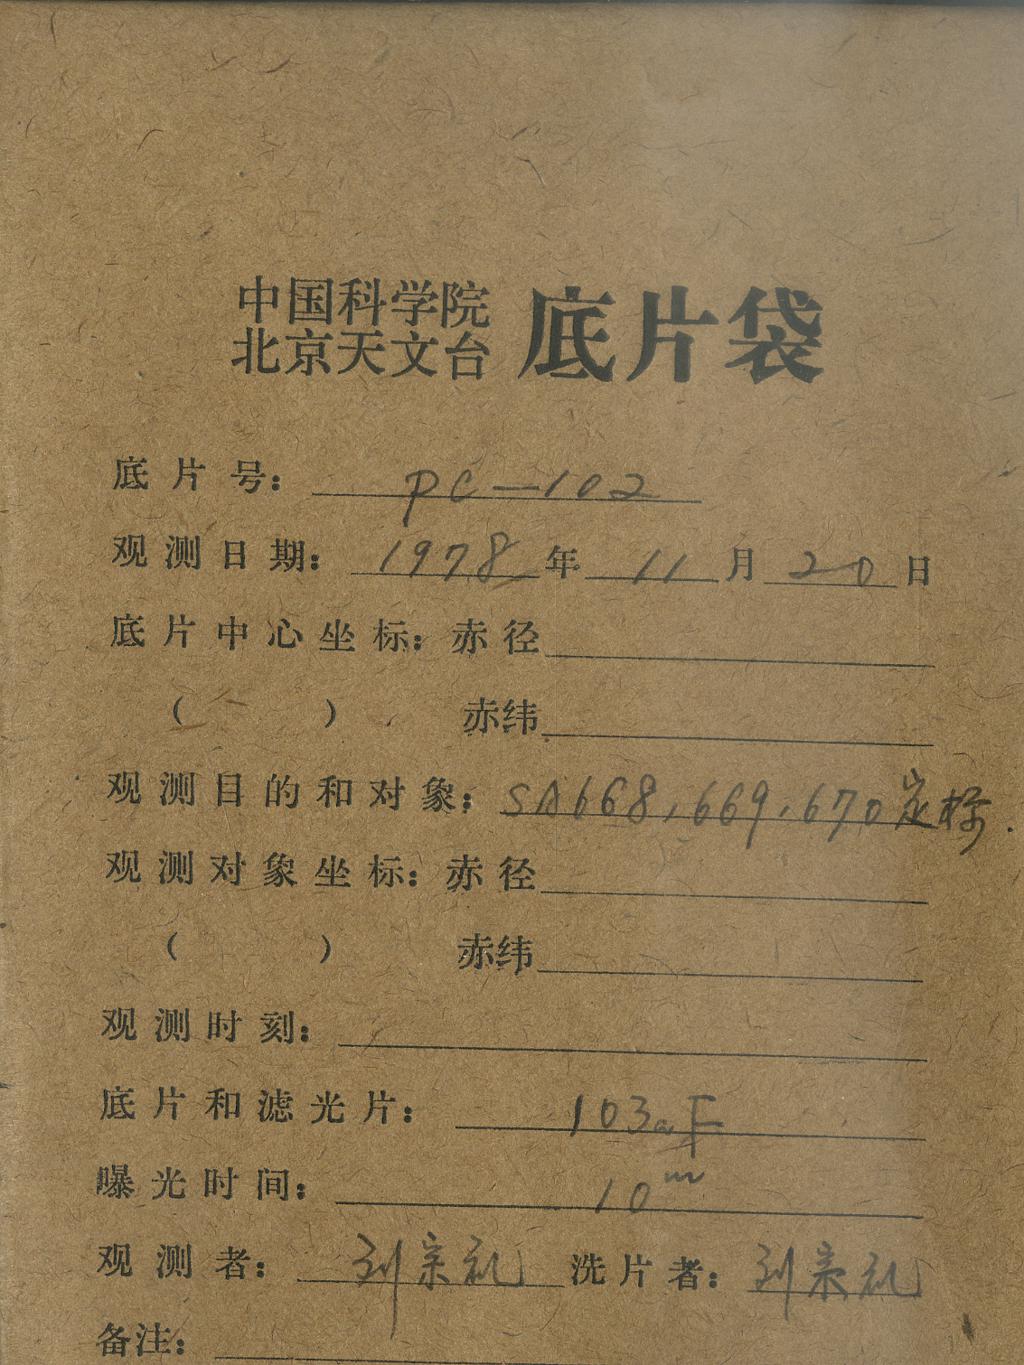 中国科学院
北京天文台 底片袋
底片号: PC-102
观测日期: 1978年 11月 20日
底片中心坐标: 赤径
( ) 赤纬
观测目的和对象: SA668,669,670定标.
观测对象坐标: 赤径
( ) 赤纬
观测时刻:
底片和滤光片: 103aF
曝光时间: 10ᵐ
观测者: 刘宗礼 洗片者: 刘宗礼
备注: